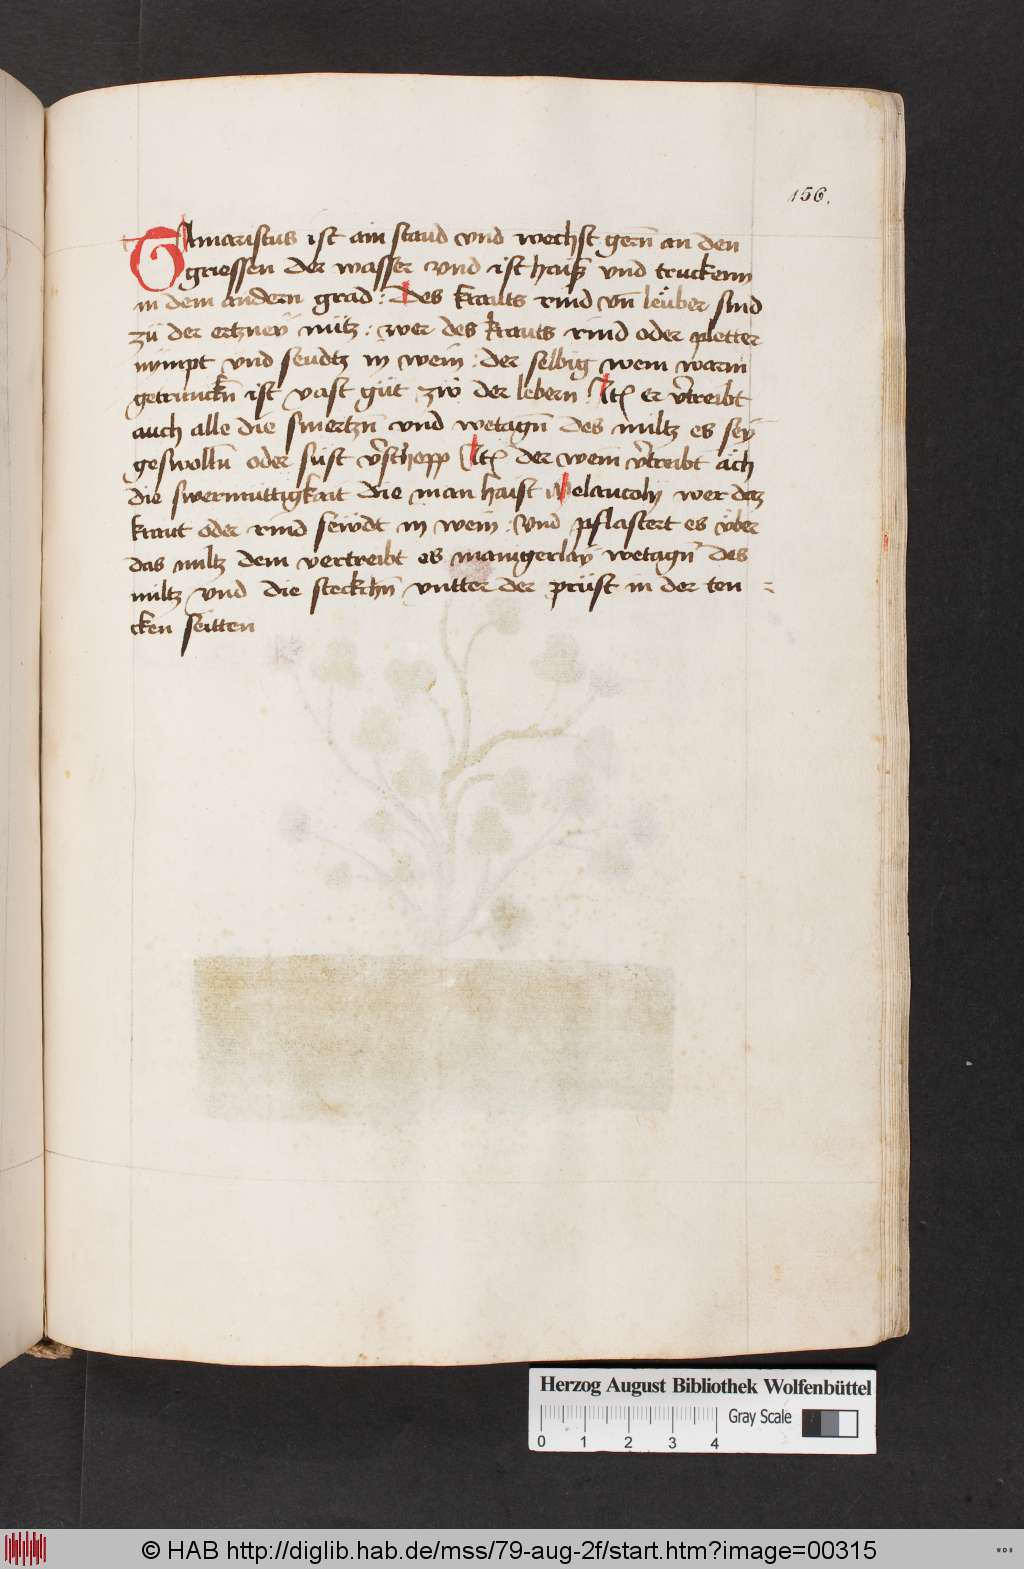 156.
TAmariscus ist ain staud vnd wechst gern̄ an den
griessen der wasser vnd ist haiß vnd truckenn
in dem andern grad : Des krauts rind vn̄ leüber sind
zü der ertzneÿ nütz : wer des krauts rind oder pletter
nÿmpt vnd seudtz in wein : der selbig wein warm
getrunckn̄ ist vast güt zw der lebern Itɘ er v̄treibt
auch alle die smertzn̄ vnd wetagn̄ des miltz es seÿ
geswolln̄ oder süst v̄schopp Itɘ der wein v̄treibt ach
die swermüttigkait die man haist Melancolÿ wer daz
kraut oder rind sewdt in wein : vnd pflastert es vber
das miltz dem vertreibt es manigerlaÿ wetagn̄ des
miltz vnd die steckchn̄ vntter der prüst in der ten =
cken seitten
Herzog August Bibliothek Wolfenbüttel
Gray Scale
0 1 2 3 4
© HAB http://diglib.hab.de/mss/79-aug-2f/start.htm?image=00315